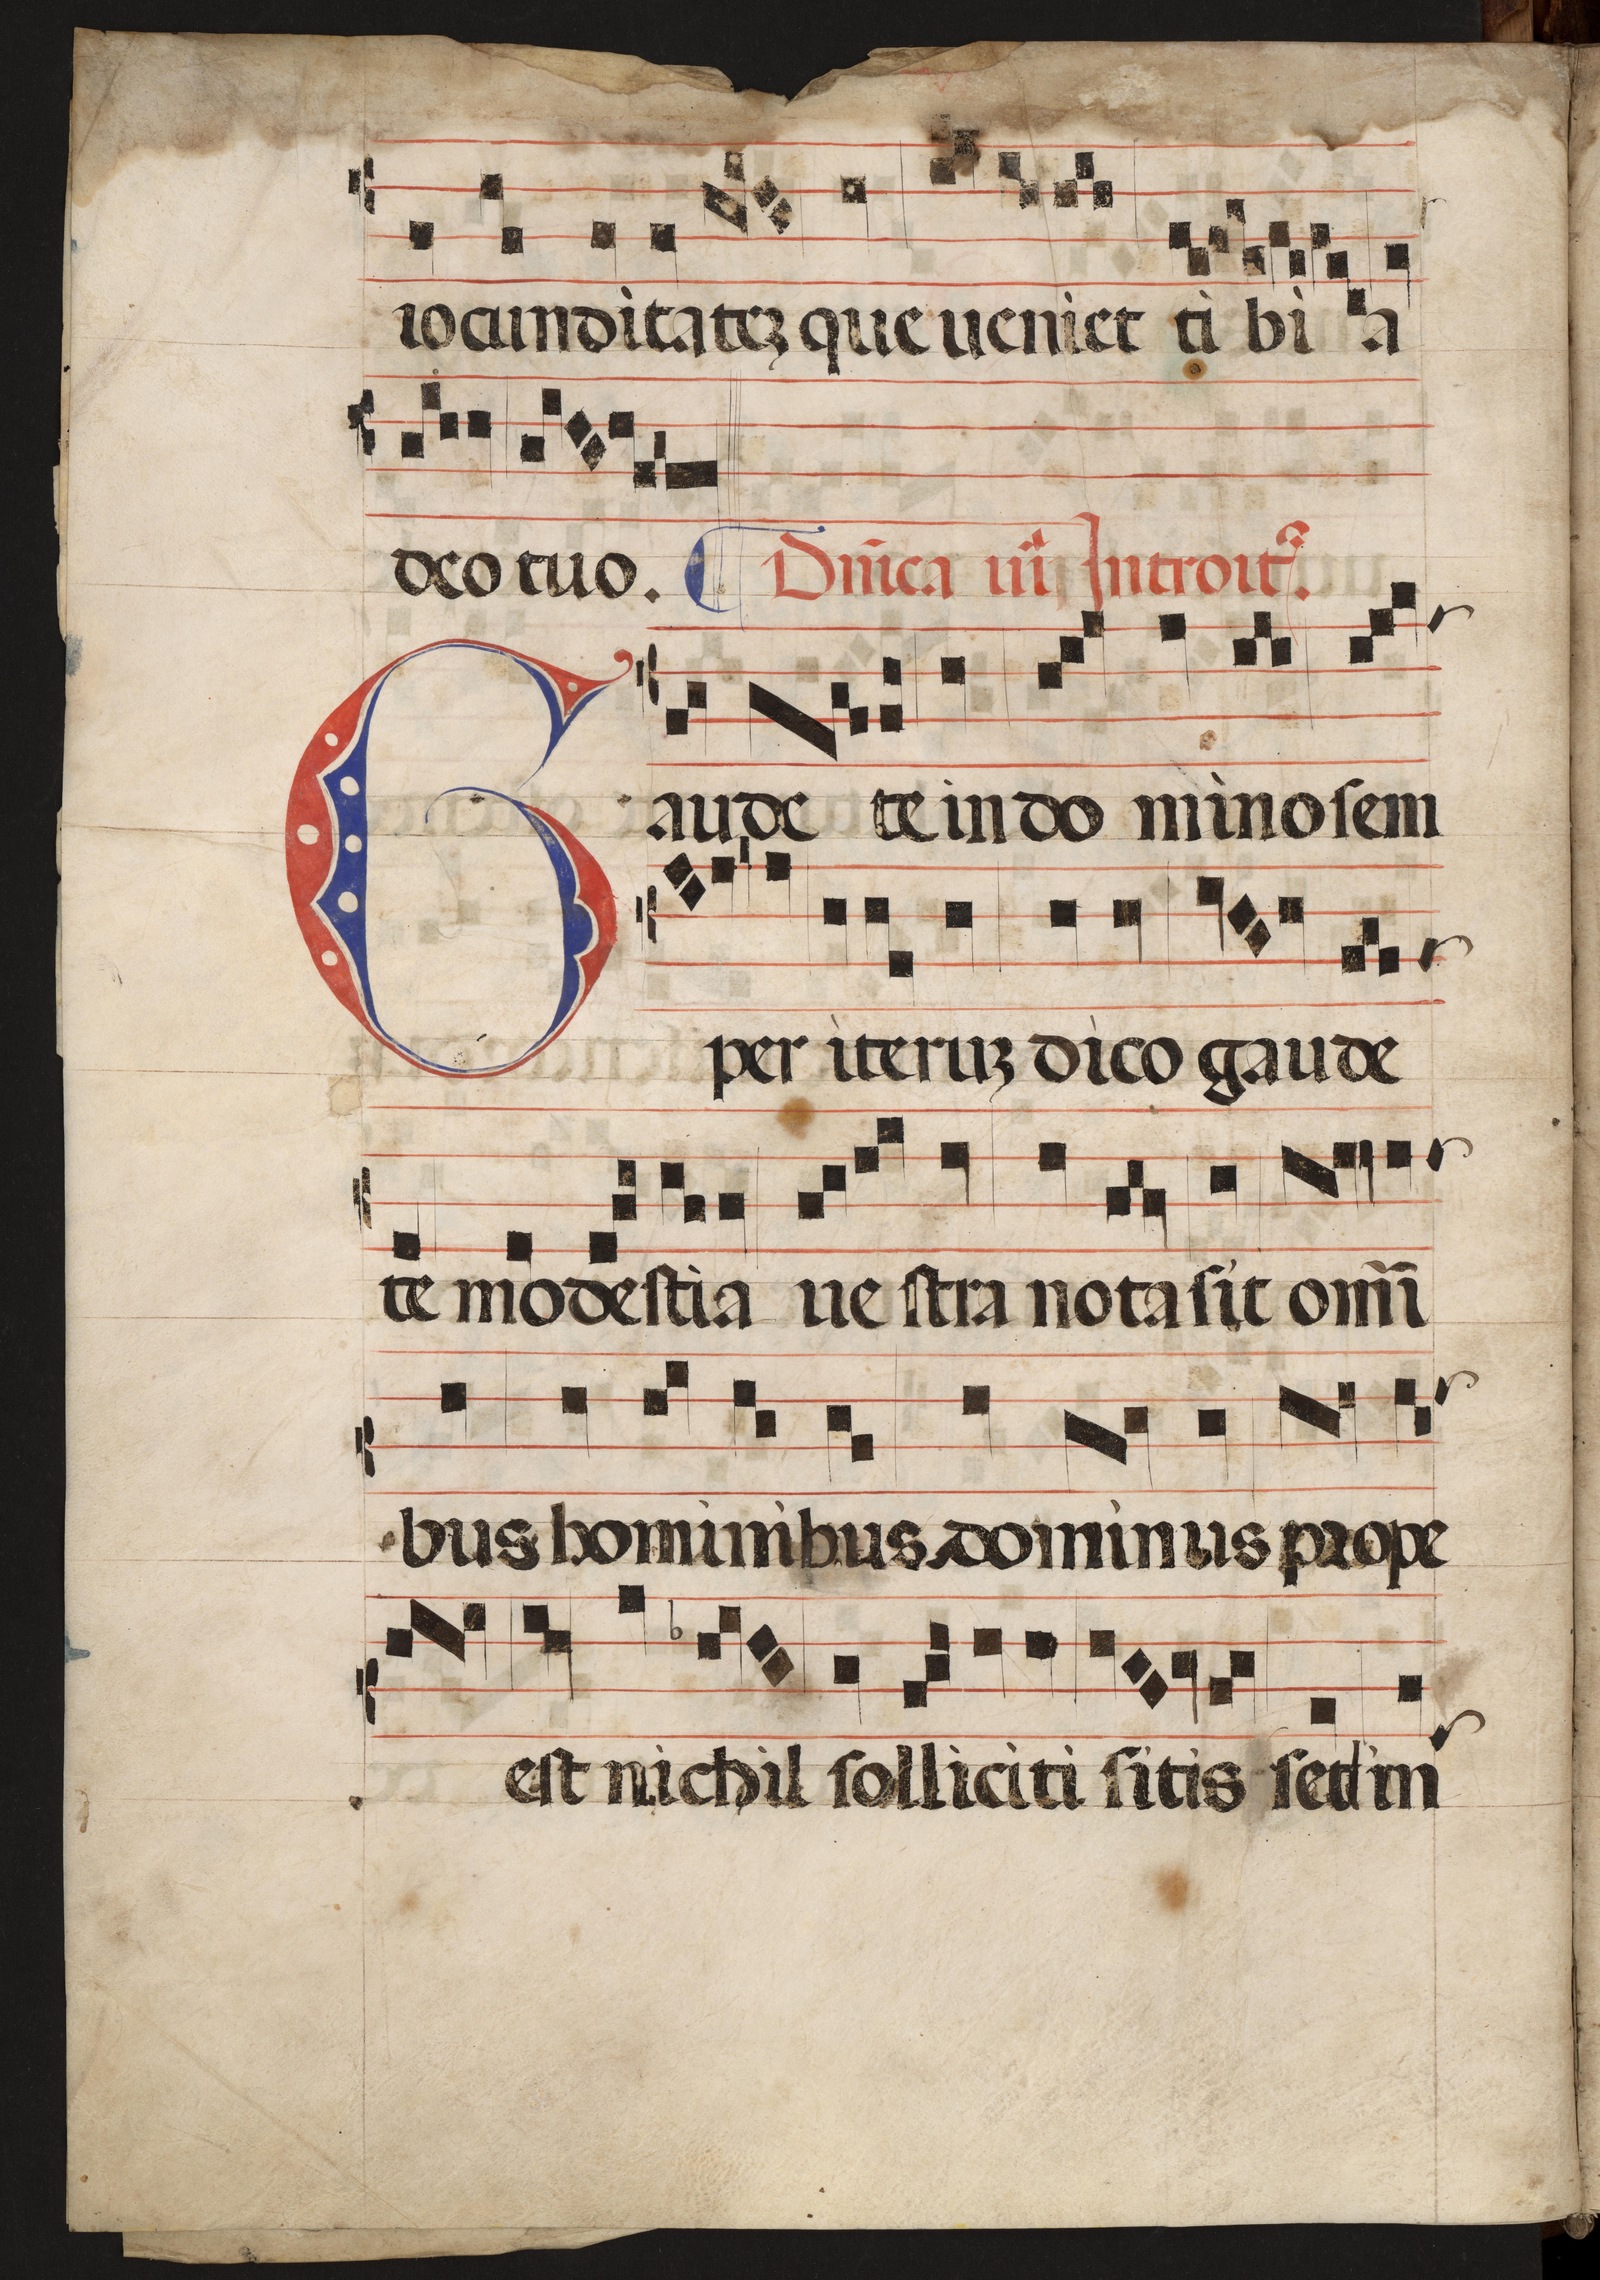 iocunditateꝫ que ueniet ti bi a
deo tuo. Dn̄ica iii Introitꝰ.
Gaude te in do mino sem
per iteruꝫ dico gaude
te modestia ue stra nota sit om̄i
bus hominibus dominus prope
est nichil solliciti sitis sed in